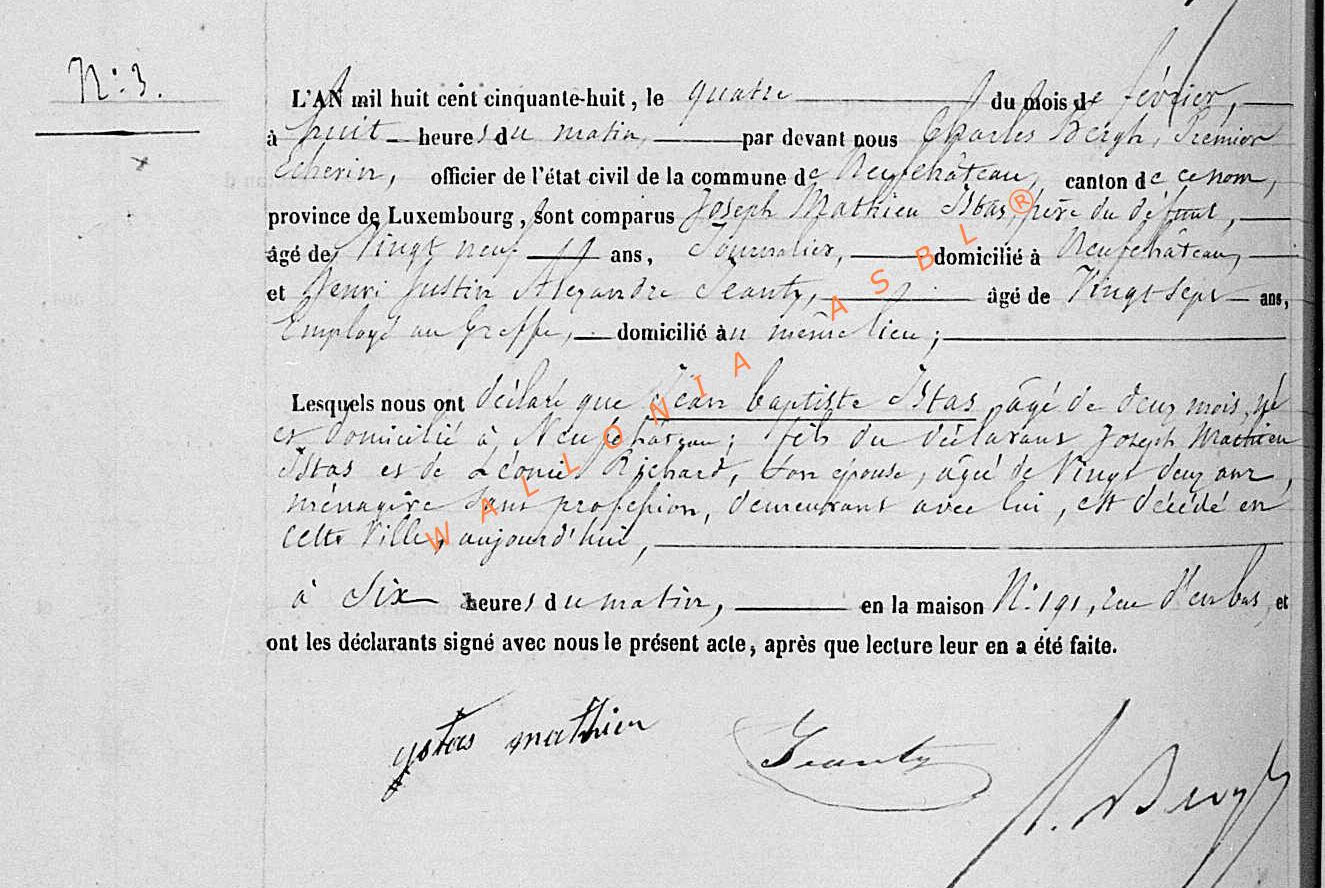 N° 3.
L'AN mil huit cent cinquante-huit, le quatre du mois de février,
à huit heures du matin, par devant nous Charles Bergh, Premier
Echevin, officier de l'état civil de la commune de Neufchâteau, canton de ce nom,
province de Luxembourg, sont comparus Joseph Mathieu Istas, père du défunt,
âgé de Vingt neuf ans, Journalier, domicilié à Neufchâteau,
et Henri Justin Alexandre Jeanty, âgé de Vingt Sept ans,
Employé au Greffe, domicilié au même lieu;
Lesquels nous ont déclaré que Jean baptiste Istas, âgé de deux mois, né
et domicilié à Neufchâteau; fils du déclarant Joseph Mathieu
Istas et de Léonie Richard, son épouse, âgée de Vingt deux ans,
ménagère sans profession, demeurant avec lui, est décédé en
cette Ville, aujourd'hui,
à Six heures du matin, en la maison N° 191, rue d'en bas, et
ont les déclarants signé avec nous le présent acte, après que lecture leur en a été faite.
ystas mathieu
Jeanty
C. Bergh
WALLONIA ASBL ®